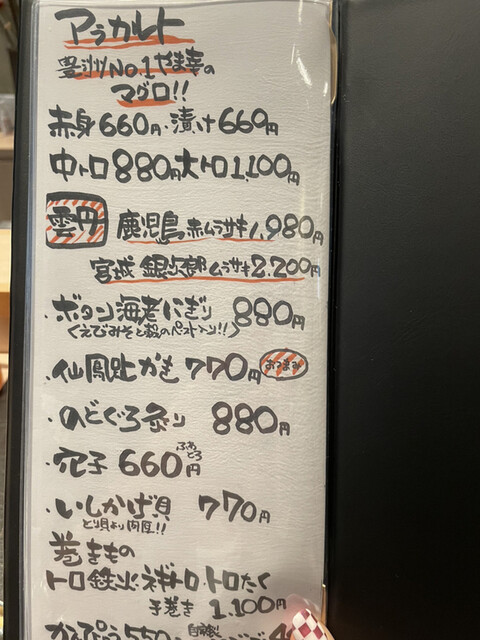 アラカルト
豊洲No.1やま幸の
マグロ!!
赤身660円・漬け660円
中トロ880円大トロ1,100円
雲丹 鹿児島赤ムラサキ1,980円
宮城 銀次郎ムラサキ2,200円
・ボタン海老にぎり 880円
(えびみそと殻のペースト入り!!)
・仙鳳趾かき 770円 おつまみ
・のどぐろ炙り 880円
・穴子 660円 ふわとろ
・いしかげ貝 770円
とり貝より肉厚!!
巻きもの
トロ鉄火 ネギトロ トロたく
手巻き 1,100円
かんぴょう550
自家製